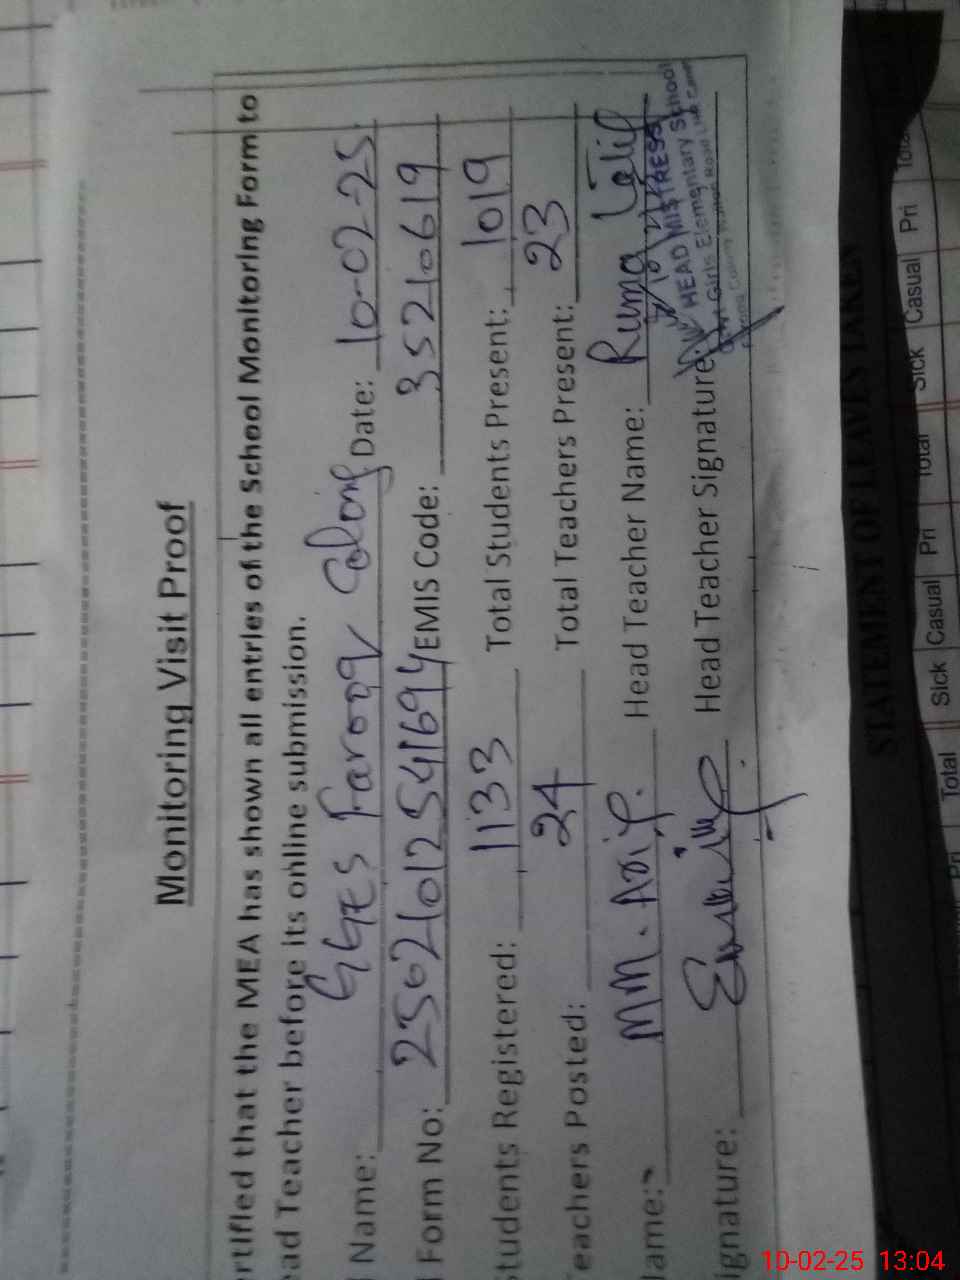 Monitoring Visit Proof
ertified that the MEA has shown all entries of the School Monitoring Form to
ead Teacher before its online submission.
Name: GGES Farooq Colony Date: 10-02-25
Form No: 2502101254169 EMIS Code: 35210619
Students Registered: 1133 Total Students Present: 1019
Teachers Posted: 24 Total Teachers Present: 23
Name: MM. Asif. Head Teacher Name: Ruma Latif
ignature: Head Teacher Signature:
HEAD MISTRESS
Girls Elementary School
Colony Walton Road Lhr Cantt
STATEMENT OF LEAVES TAKEN
Pri Total Sick Casual Pri Total Sick Casual Pri Total
10-02-25 13:04